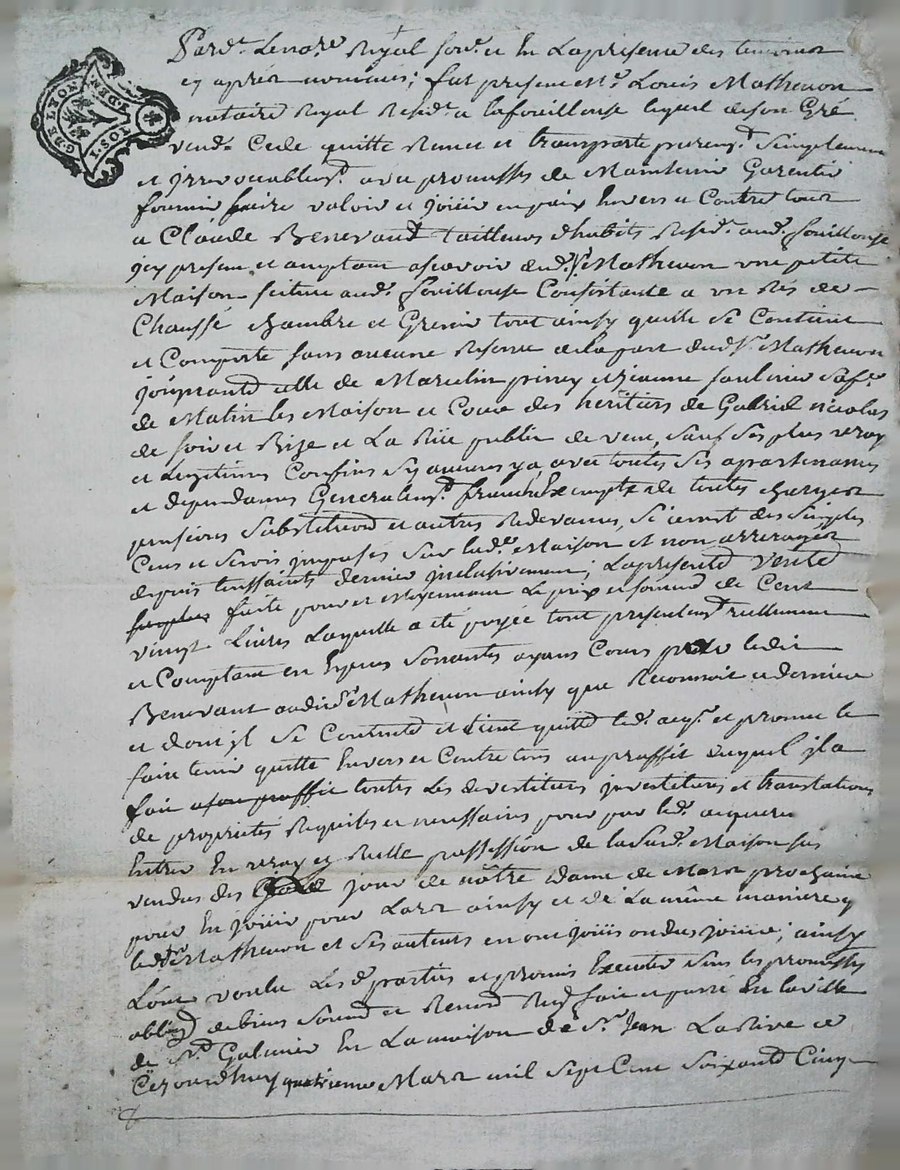 G. DE LYON
DEN
TOS. I
Pard.t Le no.re Royal sou.né et En La presence des temoins
cy aprés nommés; fut present M.e Louis Matheuon
notaire Royal Resid.t a lafouillouse lequel de son Gré
vend Cede quitte Remet et transporte purem.t Simplement
et jrrevocablem.t avec promesses de Maintenir Garentir
fournir faire valoir et joüir en paix Envers et Contre tous
a Claude Benevand tailleurs d'habits Resid.t aud. fouillouse
jcy present et acceptant ascavoir dud. S.r Matheuon une petite
Maison scitue aud. fouillouse Consistante a un Rés de
Chaussé chambre et Grenier tout ainsy quelle se Contient
et Comporte sans aucune Reserve de la part dud. S.r Matheuon
joignante celle de Marcelin et jeanne
de Matin les Maison et Cour des heritiers de Gabriel nicolas
de soir et Bize et La Rüe publie de vent, sauf ses plus vray
et Legitimes Confins sy aucuns y a, avec toutes Ses apartenances
et dependances Generalem.t franche Exempte de toutes charges
pensions Substitutions et autres Redevances, Si ce nest des Simples
Cens et Servis jmposés Sur lad.e Maison et non arreragés
depuis toussaints dernier jnclusivement; La presente Vente
faite pour et Moyennant Le prix et somme de Cent
vingt Livres Laquelle a été payée tout presentem.t reellement
et Comptant en Especes Sonnantes ayant Cours par ledit
Benevant audit S.r Matheuon ainsy que Reconnoit ce dernier
et dont jl se Contente et tient quitte led. acq.r et promet le
faire tenir quitte Envers et Contre tous au proffit duquel jl a
fait a son proffit toutes Les devestitures jnvestitures et translations
de proprietés Requises et necessaires pour par led. acquereur
Entrer En vray et Reelle possession de la susd. Maison sus
vendue des jour de nôtre Dame de Mars prochaine
pour En joüir pour Lors ainsy et de La même maniere q
led. S.r Matheuon et Ses auteurs en ont joüis ou deu joüir; ainsy
L'ont voulu Les d. parties et promis Executer Sous les promesses
oblig.on de biens Soum.on et Renon.on Req. fait et passé En la ville
de S.t Galmier En La maison de S.r Jean La Rive ce
Cejourdhuy quatrieme Mars mil Sept Cent Soixante Cinq